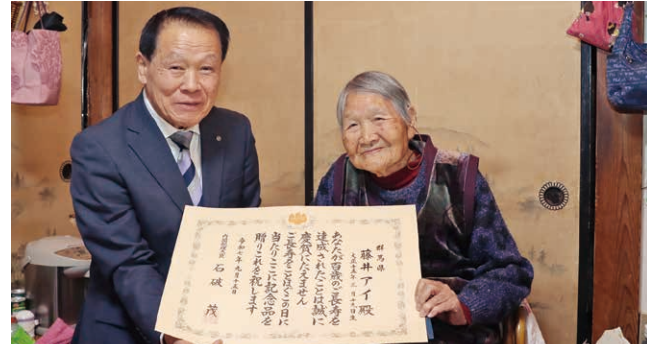 群馬県
藤井アイ殿
大正十五年三月十九日生
あなたが百歳のご長寿を
達成されたことは誠に
慶賀にたえません
ご長寿をことほぐこの日に
当たりここに記念品を
贈りこれを祝します
令和七年九月十五日
内閣総理大臣 石破 茂